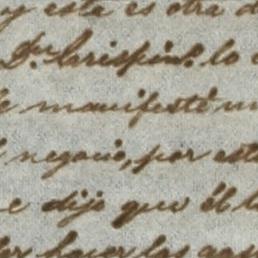 y esta es otra d
Dn. Crispín. lo
le manifesté m
negocio, por est
e dijo que él l
por hacer las